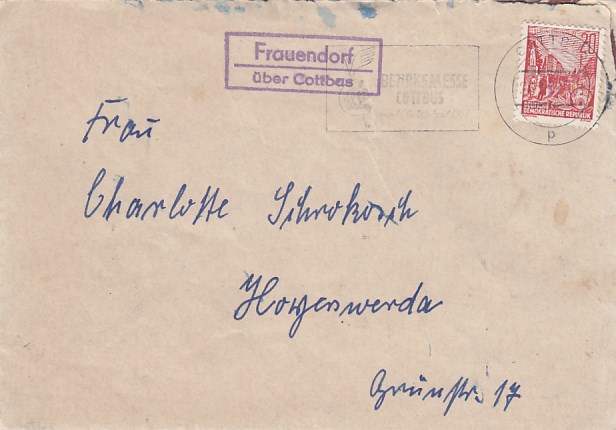 Frauendorf
über Cottbus
BEZIRKSMESSE
COTTBUS
20
DEMOKRATISCHE REPUBLIK
p
Frau
Charlotte
Hoyerswerda
Grünstr. 17